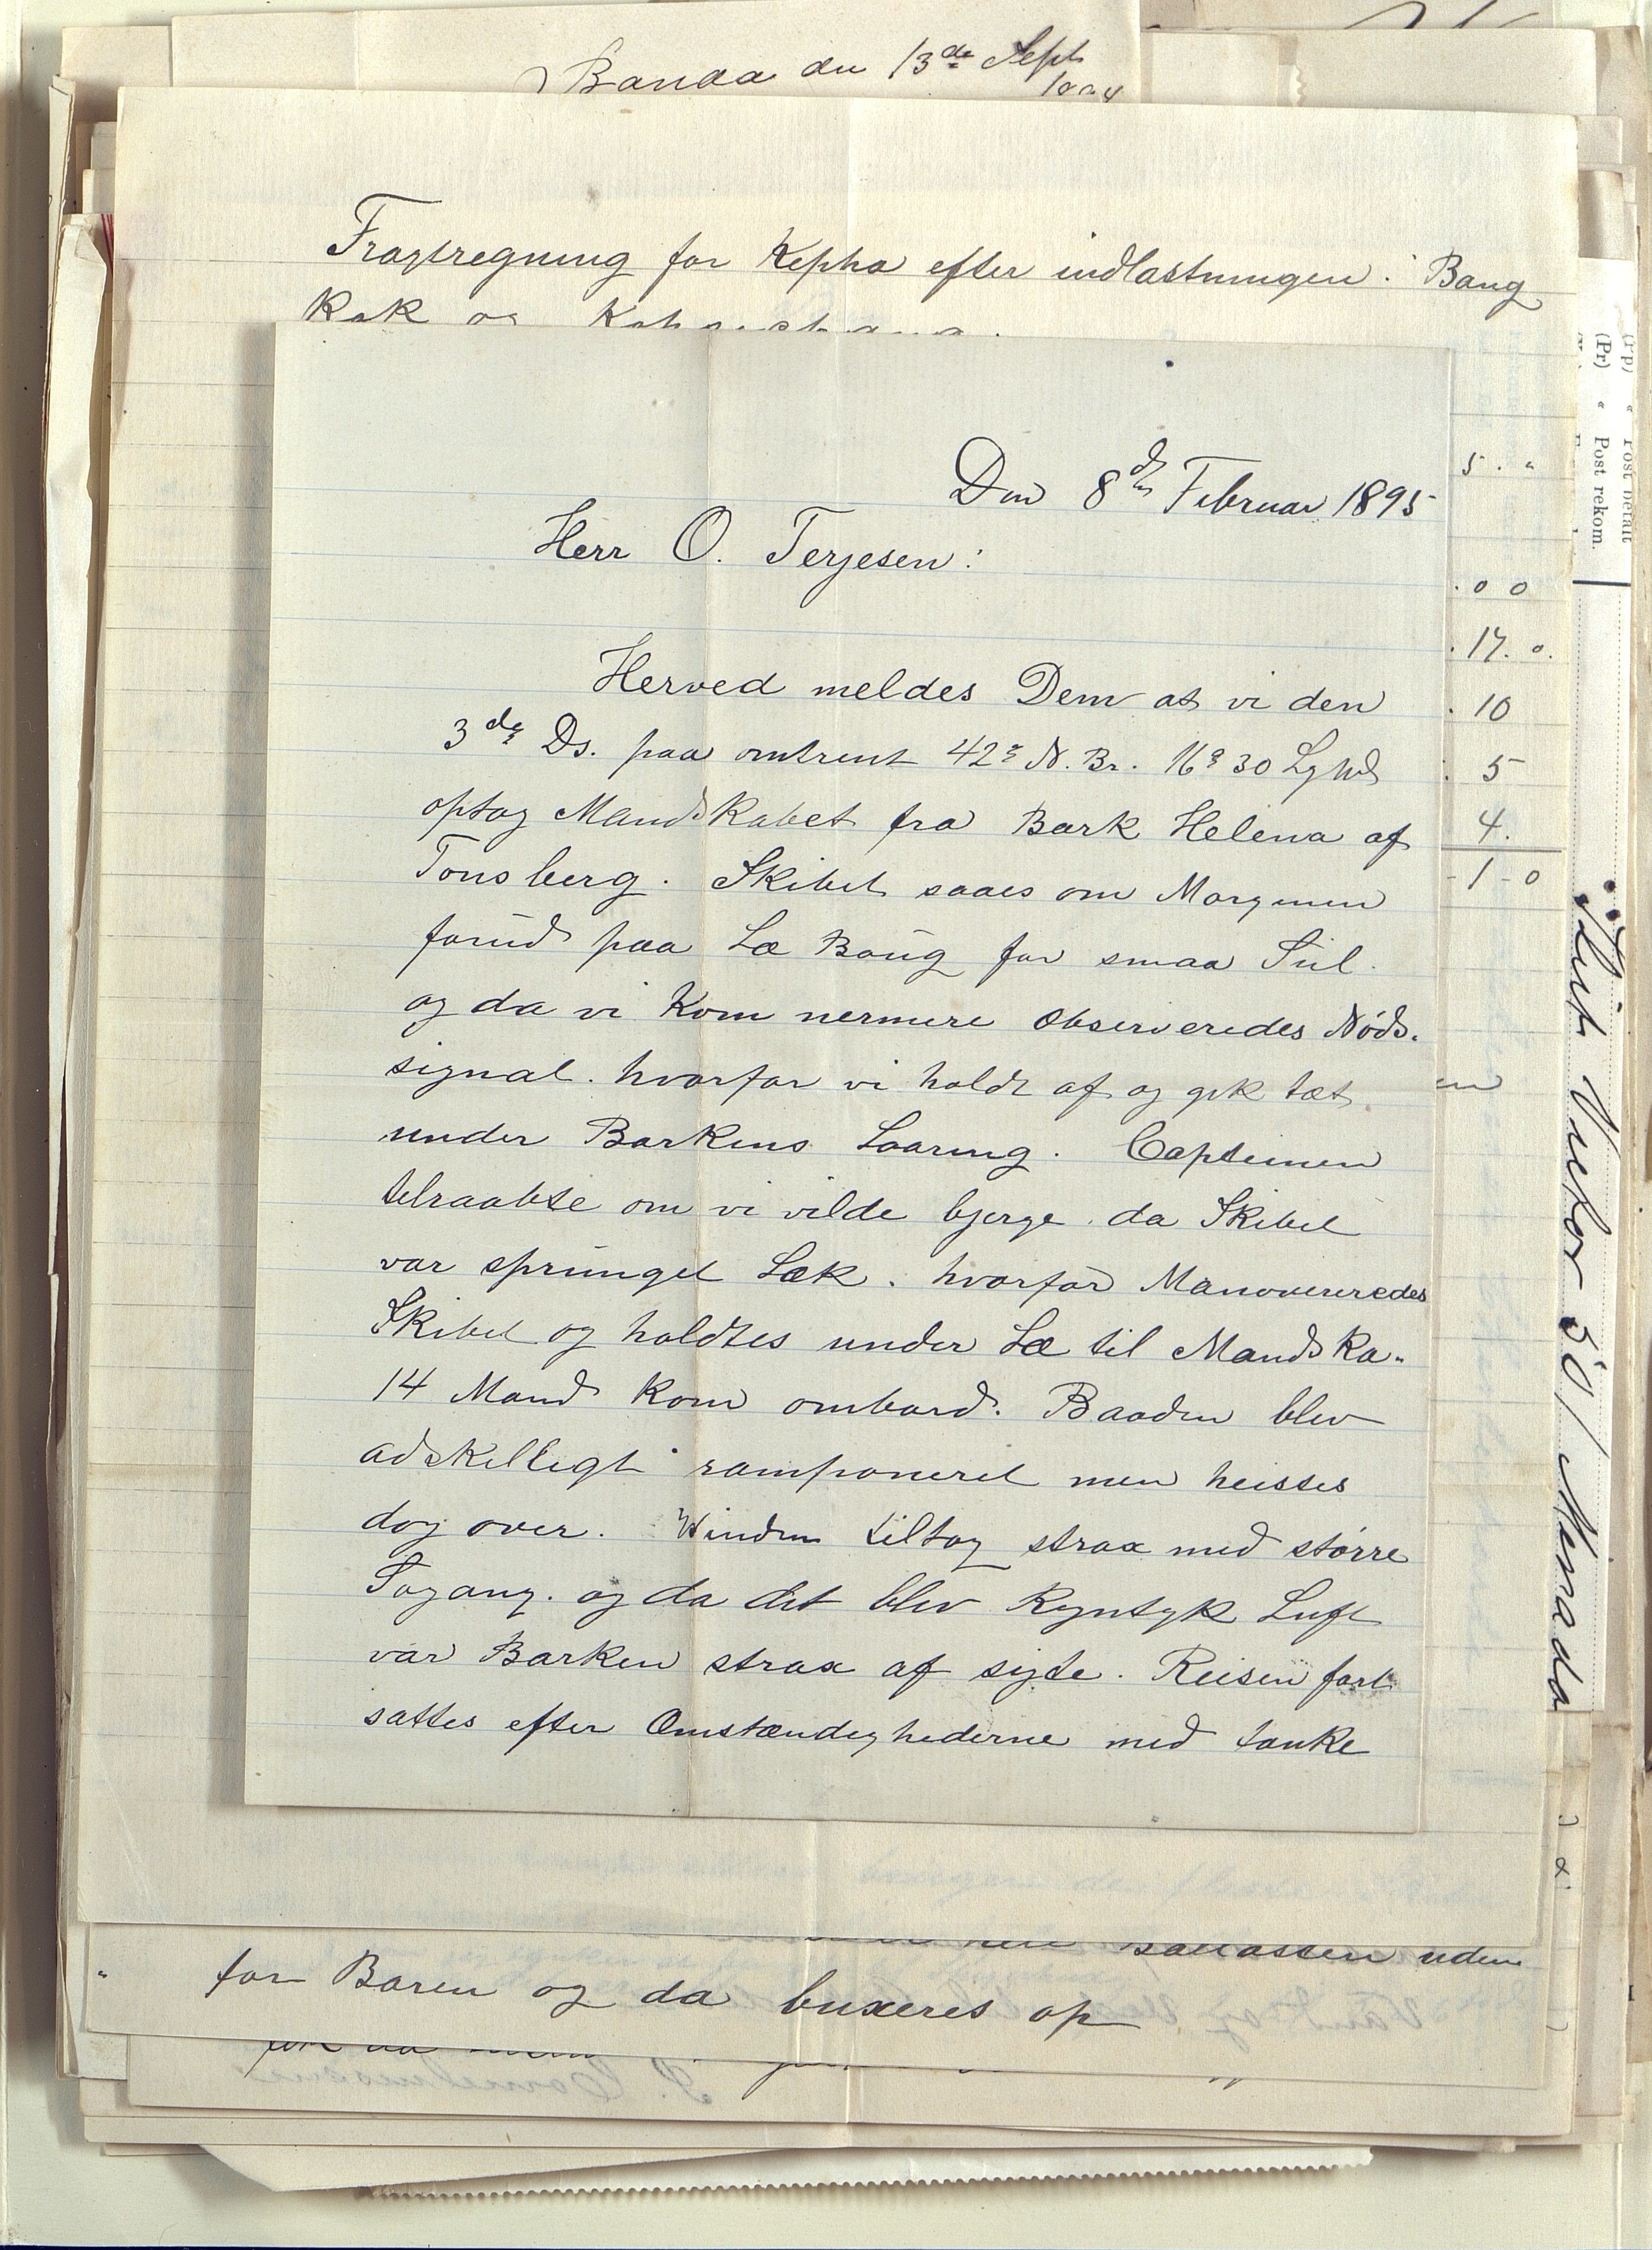 Banda den 13de Sept
Fragtregning for Kepha efter indlastningen i Bang
kok og
Den 8de Februar 1895
Herr O. Terjesen:
Herved meldes Dem at vi den
3de Ds. paa omtrent 42° N. Br. 16° 30 Lgd
optog Mandskabet fra Bark Helena af
Tonsberg. Skibet saaes om Morgenen
forud paa Læ Boug for smaa Seil.
og da vi kom nermere observeredes Nøds-
signal. hvorfor vi holdt af og gik tæt
under Barkens Laaring. Capteinen
tilraabte om vi vilde bjerge. da Skibet
var sprunget Læk. hvorfor Manovereredes
Skibet og holdtes under Læ til Mandska-
14 Mand kom ombord. Baaden blev
adskilligt ramponeret men heisses
dog over. Winden tiltog strax med større
Søgang. og da det blev Regntyk Luft
var Barken strax af sigte. Reisen fort
sattes efter Omstændighederne med tanke
5 . "
. 0 0
. 17. 0.
. 10
. 5
4.
- 1 - 0
en
Ballasten uden
for Baren og da buxeres op
(Pr) " Post rekom.
Post betalt